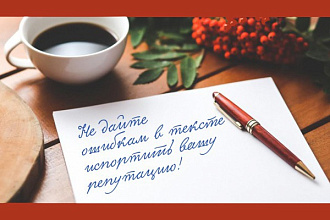 Не дайте
ошибкам в тексте
испортить вашу
репутацию!